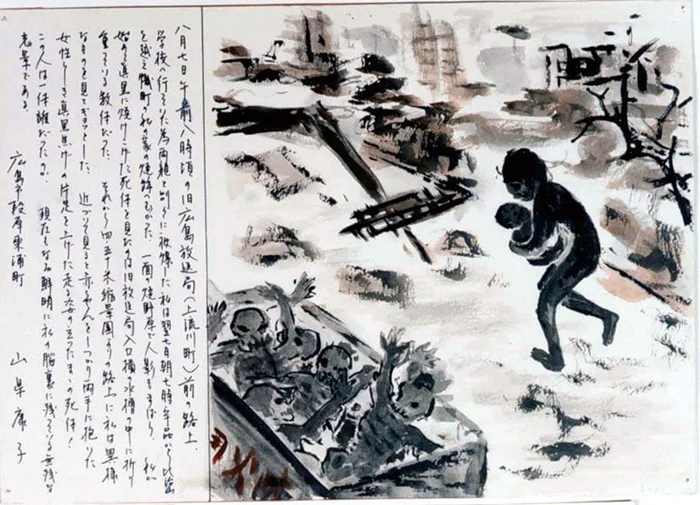 八月七日午前八時頃の旧広島放送局(上流川町)前の路上、
学校へ行ってゐた為両親と別々に被爆した私は翌七日朝七時半から比治山
を越え幟町の私の家の焼跡へ向った。一面焼野原で人影もまばら、私が
始めて真黒に焼けこげた死体を見たのは旧放送局入口横の水槽の中に折り
重っている数体だった。それから四・五米縮景園よりの路上に私は異様
なものを見てギョッとした。近づいて見ると赤ちゃんをしっかり両手に抱いた
女性らしき真黒焦げの片足を上げた走る姿の立ったまゝの死体!
この人は一体誰だったのか。現在もなお鮮明に私の脳裏に残っている無残な
光景である。
広島市段原東浦町 山県康子